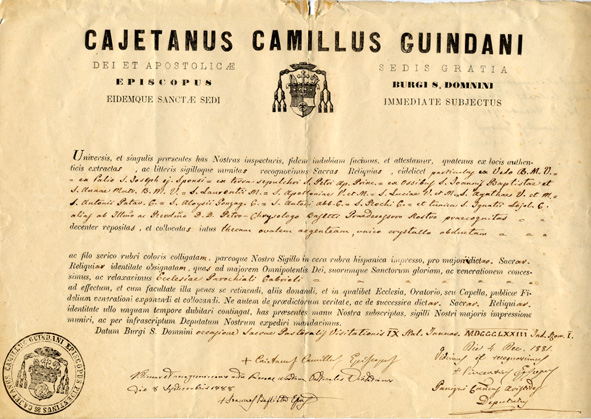 CAJETANUS CAMILLUS GUINDANI
DEI ET APOSTOLICÆ SEDIS GRATIA
EPISCOPUS BURGI S. DOMNINI
EIDEMQUE SANCTÆ SEDI IMMEDIATE SUBJECTUS
Universis, et singulis præsentes has Nostras inspecturis, fidem indubiam facimus, et attestamur, quatenus ex locis authen-
ticis extractas, ac litteris sigilloque munitas recognovimus Sacras Reliquias, videlicet particulas ex Velo B. M. V. -
ex Pallio S. Joseph ej. Sponsi - ex S. Petri Ap. Princ. - ex Ossibus S. Joannis Baptistæ et
S. Annæ Matr. B. M. V. - S. Laurentii M. - S. Apolloniæ V. et M. - S. Luciæ V. et M. - S. Agathæ V. et M.
S. Antonii Patav. C. - S. Aloysii Gonzag. C. - S. Antonii Abb. C. - S. Rochi C. - et S. Ignatii Lojol. C.
alias ab Illmo ac Revdmo D. D. Petro Chrysologo Basetti recognitas
decenter repositas, et collocatas intus thecam ovalem argenteam, unico crystallo obductam
ac filo serico rubri coloris colligatam, parvoque Nostro Sigillo in cera rubra hispanica impresso, pro majori dictar. Sacrar.
Reliquiar identitate obsignatam, quas ad majorem Omnipotentis Dei, suorumque Sanctorum gloriam, ac venerationem conces-
simus, ac relaxavimus Ecclesiæ Parochiali Gabrioli
ad effectum, et cum facultate illa penes se retinendi, aliis donandi, et in qualibet Ecclesia, Oratorio, seu Capella, publicæ Fi-
delium venerationi exponendi et collocandi. Ne autem de prædictorum veritate, ac de successore dictar. Sacrar. Reliquiar.
identitate ullo unquam tempore dubitari contingat, has præsentes manu Nostra subscriptas, sigilli Nostri majoris impressione
muniri, ac per infrascriptum Deputatum Nostrum expediri mandavimus.
Datum Burgi S. Domnini occasione Sacræ Pastoralis Visitationis IX Kal. Januar. MDCCCLXXIII Ind. Rom. I.
+ Cajetanus Camillus Episcopus
Die 4 Dec. 1881
Vidimus et recognovimus
+ Vincentius Episcopus
Die 8 Septembris 1888
+ Joannes Baptista Epus
Deputatus
CAJETANUS CAMILLUS GUINDANI EPISCOPUS